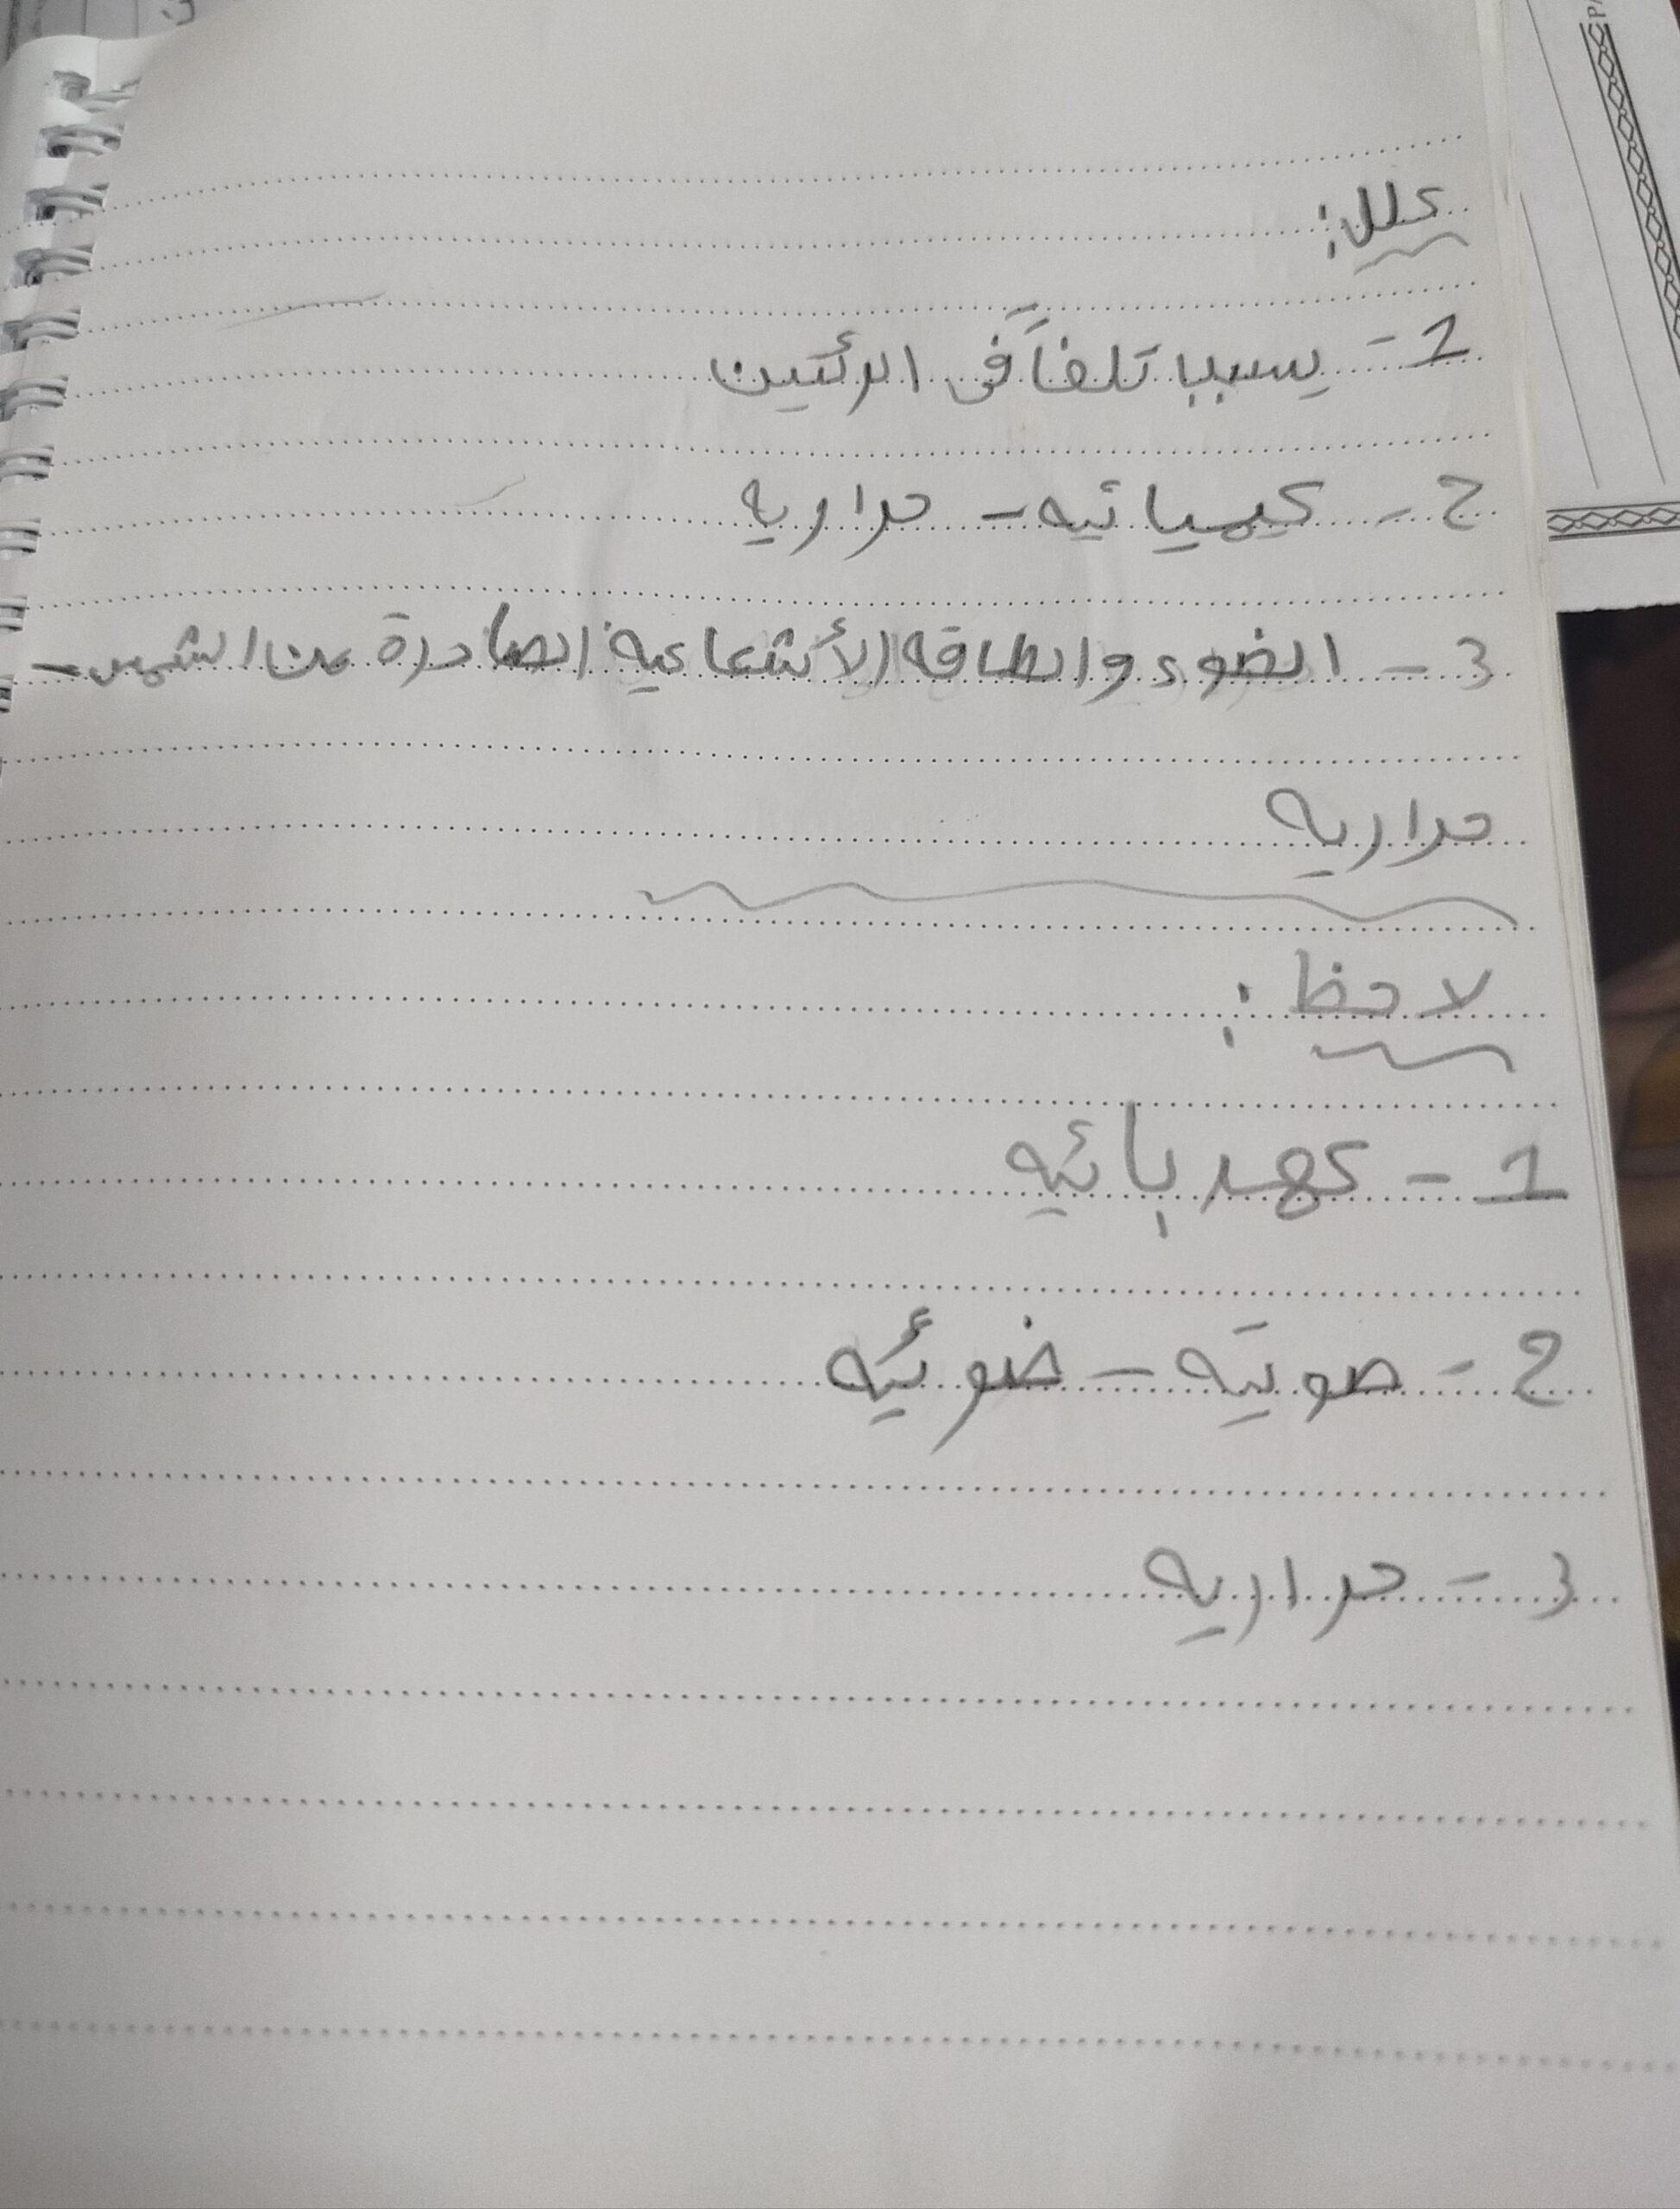 علل:
1- يسببا تلفاً فى الرئتين
2- كيميائيه - حراريه
3- الضوء والطاقه الأشعاعيه الصادرة من الشمس -
حراريه
لاحظ:
1- كهربائيه
2- صوتيه - ضوئيه
3- حراريه